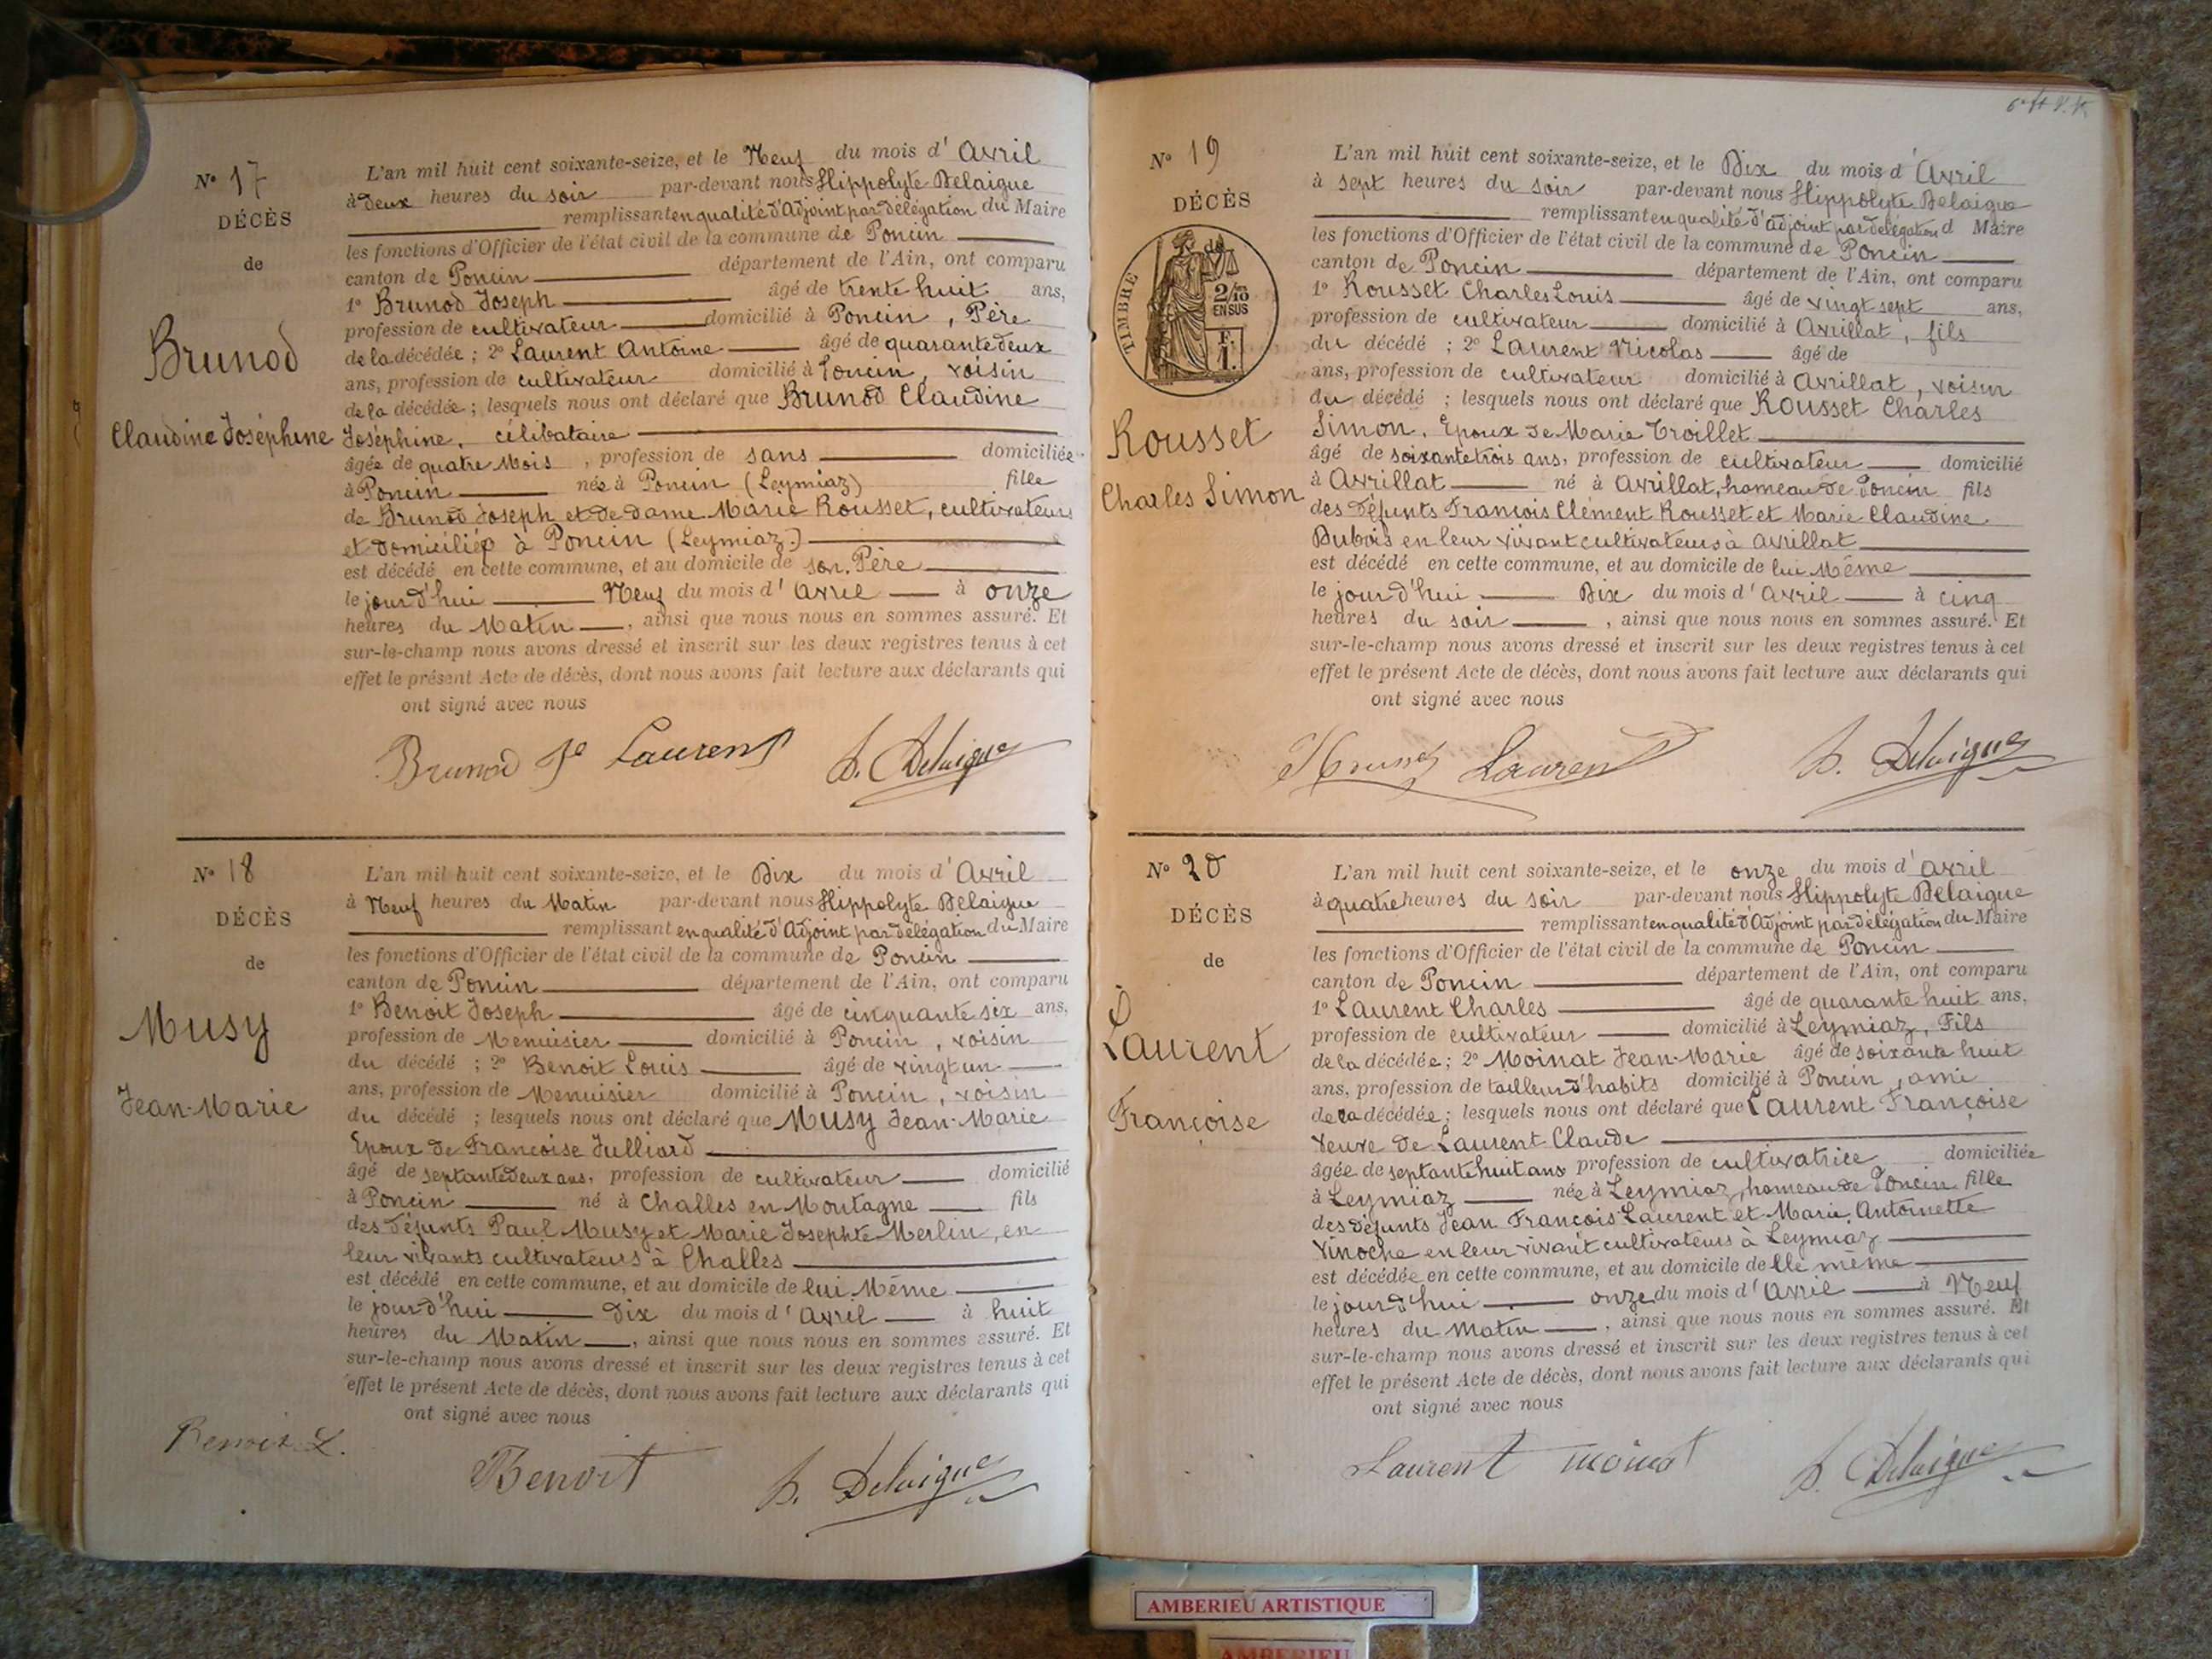 N° 17
DÉCÈS
de
Brunod
Claudine Joséphine
L'an mil huit cent soixante-seize, et le Neuf du mois d'Avril
à deux heures du soir par-devant nous Hippolyte Delaigue
remplissant en qualité d'Adjoint par délégation du Maire
les fonctions d'Officier de l'état civil de la commune de Poncin
canton de Poncin département de l'Ain, ont comparu
1° Brunod Joseph âgé de trente huit ans,
profession de cultivateur domicilié à Poncin, Père
de la décédée ; 2° Laurent Antoine âgé de quarante deux
ans, profession de cultivateur domicilié à Poncin, voisin
de la décédée ; lesquels nous ont déclaré que Brunod Claudine
Joséphine, célibataire
âgée de quatre Mois, profession de sans domiciliée
à Poncin née à Poncin (Leymiaz) fille
de Brunod Joseph et de dame Marie Rousset, cultivateurs
et domiciliés à Poncin (Leymiaz.)
est décédé en cette commune, et au domicile de son Père
le jourd'hui Neuf du mois d'Avril à onze
heures du Matin, ainsi que nous nous en sommes assuré. Et
sur-le-champ nous avons dressé et inscrit sur les deux registres tenus à cet
effet le présent Acte de décès, dont nous avons fait lecture aux déclarants qui
ont signé avec nous
Brunod Je Laurent h. Delaigue
N° 18
DÉCÈS
de
Musy
Jean-Marie
L'an mil huit cent soixante-seize, et le Dix du mois d'Avril
à Neuf heures du Matin par-devant nous Hippolyte Delaigue
remplissant en qualité d'Adjoint par délégation du Maire
les fonctions d'Officier de l'état civil de la commune de Poncin
canton de Poncin département de l'Ain, ont comparu
1° Benoit Joseph âgé de cinquante six ans,
profession de Menuisier domicilié à Poncin, voisin
du décédé ; 2° Benoit Louis âgé de vingt un
ans, profession de Menuisier domicilié à Poncin, voisin
du décédé ; lesquels nous ont déclaré que Musy Jean-Marie
Epoux de Françoise Julliard
âgé de septante deux ans, profession de cultivateur domicilié
à Poncin né à Challes en Montagne fils
des défunts Paul Musy et Marie Josephte Merlin, en
leur vivants cultivateurs à Challes
est décédé en cette commune, et au domicile de lui Même
le jourd'hui Dix du mois d'Avril à huit
heures du Matin, ainsi que nous nous en sommes assuré. Et
sur-le-champ nous avons dressé et inscrit sur les deux registres tenus à cet
effet le présent Acte de décès, dont nous avons fait lecture aux déclarants qui
ont signé avec nous
Benoit L.
Benoit h. Delaigue
N° 19
DÉCÈS
de
TIMBRE
2/10
EN SUS
F.
1.
Rousset
Charles Simon
L'an mil huit cent soixante-seize, et le Dix du mois d'Avril
à sept heures du soir par-devant nous Hippolyte Delaigue
remplissant en qualité d'adjoint par délégation d Maire
les fonctions d'Officier de l'état civil de la commune de Poncin
canton de Poncin département de l'Ain, ont comparu
1° Rousset Charles Louis âgé de vingt sept ans,
profession de cultivateur domicilié à Avrillat, fils
du décédé ; 2° Laurent Nicolas âgé de
ans, profession de cultivateur domicilié à Avrillat, voisin
du décédé ; lesquels nous ont déclaré que Rousset Charles
Simon, Epoux de Marie Troillet
âgé de soixante trois ans, profession de cultivateur domicilié
à Avrillat né à Avrillat, hameau de Poncin fils
des défunts François Clément Rousset et Marie Claudine
Dubois en leur vivant cultivateurs à Avrillat
est décédé en cette commune, et au domicile de lui Même
le jourd'hui Dix du mois d'Avril à cinq
heures du soir, ainsi que nous nous en sommes assuré. Et
sur-le-champ nous avons dressé et inscrit sur les deux registres tenus à cet
effet le présent Acte de décès, dont nous avons fait lecture aux déclarants qui
ont signé avec nous
Laurent h. Delaigue
N° 20
DÉCÈS
de
Laurent
Françoise
L'an mil huit cent soixante-seize, et le onze du mois d'avril
à quatre heures du soir par-devant nous Hippolyte Delaigue
remplissant en qualité d'Adjoint par délégation du Maire
les fonctions d'Officier de l'état civil de la commune de Poncin
canton de Poncin département de l'Ain, ont comparu
1° Laurent Charles âgé de quarante huit ans,
profession de cultivateur domicilié à Leymiaz, Fils
de la décédée ; 2° Moinat Jean-Marie âgé de soixante huit
ans, profession de tailleur d'habits domicilié à Poncin, ami
de la décédée ; lesquels nous ont déclaré que Laurent Françoise
Veuve de Laurent Claude
âgée de septante huit ans profession de cultivatrice domiciliée
à Leymiaz née à Leymiaz, hameau de Poncin fille
des défunts Jean François Laurent et Marie Antoinette
Vinoche en leur vivant cultivateurs à Leymiaz
est décédée en cette commune, et au domicile de lle même
le jourd'hui onze du mois d'Avril à Neuf
heures du Matin, ainsi que nous nous en sommes assuré. Et
sur-le-champ nous avons dressé et inscrit sur les deux registres tenus à cet
effet le présent Acte de décès, dont nous avons fait lecture aux déclarants qui
ont signé avec nous
Laurent moinat h. Delaigue
AMBERIEU ARTISTIQUE
AMBERIEU